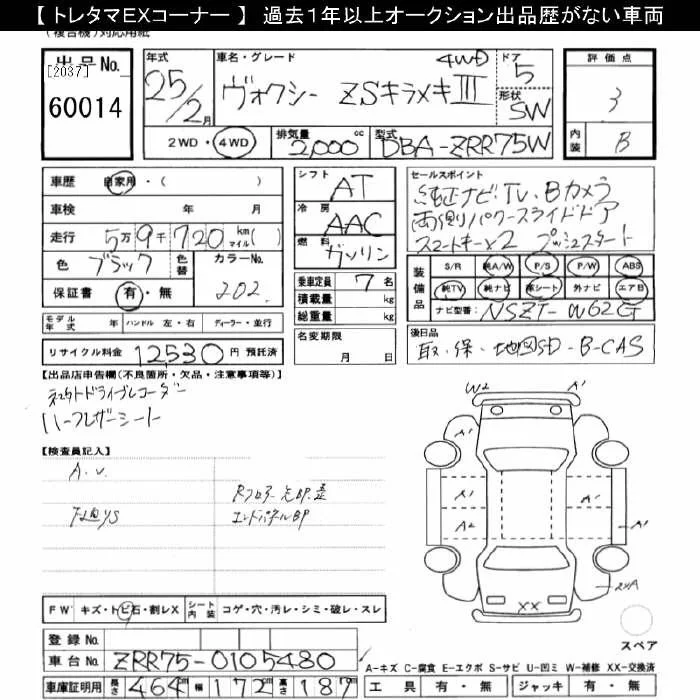 【 トレタマEXコーナー 】 過去1年以上オークション出品歴がない車両
(複合機)対応用紙
出品No.
[2037]
60014
年式
25/2月
車名・グレード
ヴォクシー ZSキラメキⅢ
4WD
ドア
5
形状
SW
2WD・4WD
排気量
2,000cc
型式
DBA-ZRR75W
評価点
3
内装
B
車歴 自家用・( )
車検 年 月
走行 5万9千720 km マイル( )
色 ブラック 色替 カラーNo. 202
保証書 有・無
シフト AT
冷房 AAC
燃料 ガソリン
乗車定員 7名
積載量 kg
総重量 kg
セールスポイント
純正ナビ・TV・Bカメラ
両側パワースライドドア
スマートキーx2 プッシュスタート
装備品
S/R 純A/W P/S P/W ABS
純TV 純ナビ 革シート 外ナビ エアB
ナビ型番: NSZT-W62G
モデル年式 年 ハンドル 左・右 ディーラー・並行
リサイクル料金 12530円 預託済
名変期限
月 日
後日品
取・保・地図SD・B-CAS
【出品店申告欄(不良箇所・欠品・注意事項等)】
ドライブレコーダー
ハーフレザーシート
【検査員記入】
A.U.
エンドパネルBP
W2 A'
A' A'
A' A'
A2 A' A'
XX
FW キズ・トビ石・割レX
シート内装 コゲ・穴・汚レ・シミ・破レ・スレ
スペア
登録No.
車台No. ZRR75-0105480
A-キズ C-腐食 E-エクボ S-サビ U-凹ミ W-補修 XX-交換済
車庫証明用 長さ 464cm 幅 172cm 高さ 187cm
工具 有・無 ジャッキ 有・無